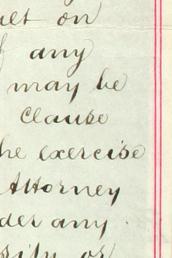 ult on
any
may be
Clause
he exercise
Attorney
der any
sity or